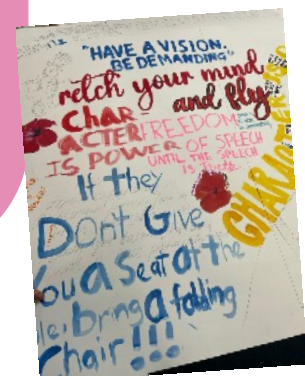 "HAVE A VISION.
BE DEMANDING"
retch your mind
and fly.
CHAR-
ACTER
IS POWER
FREEDOM
OF SPEECH
UNTIL THE SPEECH
is
If they
DONt Give
ou a Seat at the
le, bring a folding
Chair!!!
CHARACTER